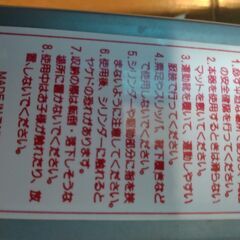 全確認を行ってく
2.本器を使用するときは滑らない
マットを敷いてください。
3.運動靴を履いて、運動しやすい
服装で行ってください。
4.素足やスリッパ、靴下履きなど
で使用しないでください。
5.シリンダーや可動部分に指を挟
まないように注意してください。
6.使用後、シリンダーに触れると
ヤケドの恐れがあります。
7.収納の際は転倒・落下しそうな
場所に置かないでください。
8.使用中はお子様が触れたり、放
置しないでください。
MADE IN